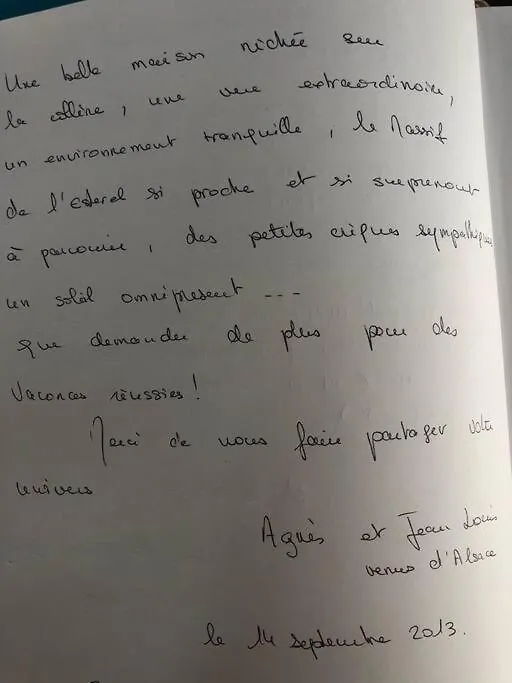 Une belle maison nichée sur
la colline, une vue extraordinaire,
un environnement tranquille, le Massif
de l'Esterel si proche et si surprenant
à parcourir, des petites criques sympathiques
un soleil omniprésent ---
que demander de plus pour des
vacances réussies !
Merci de nous faire partager votre
univers
Agnès et Jean Louis
venus d'Alsace
le 14 septembre 2013.